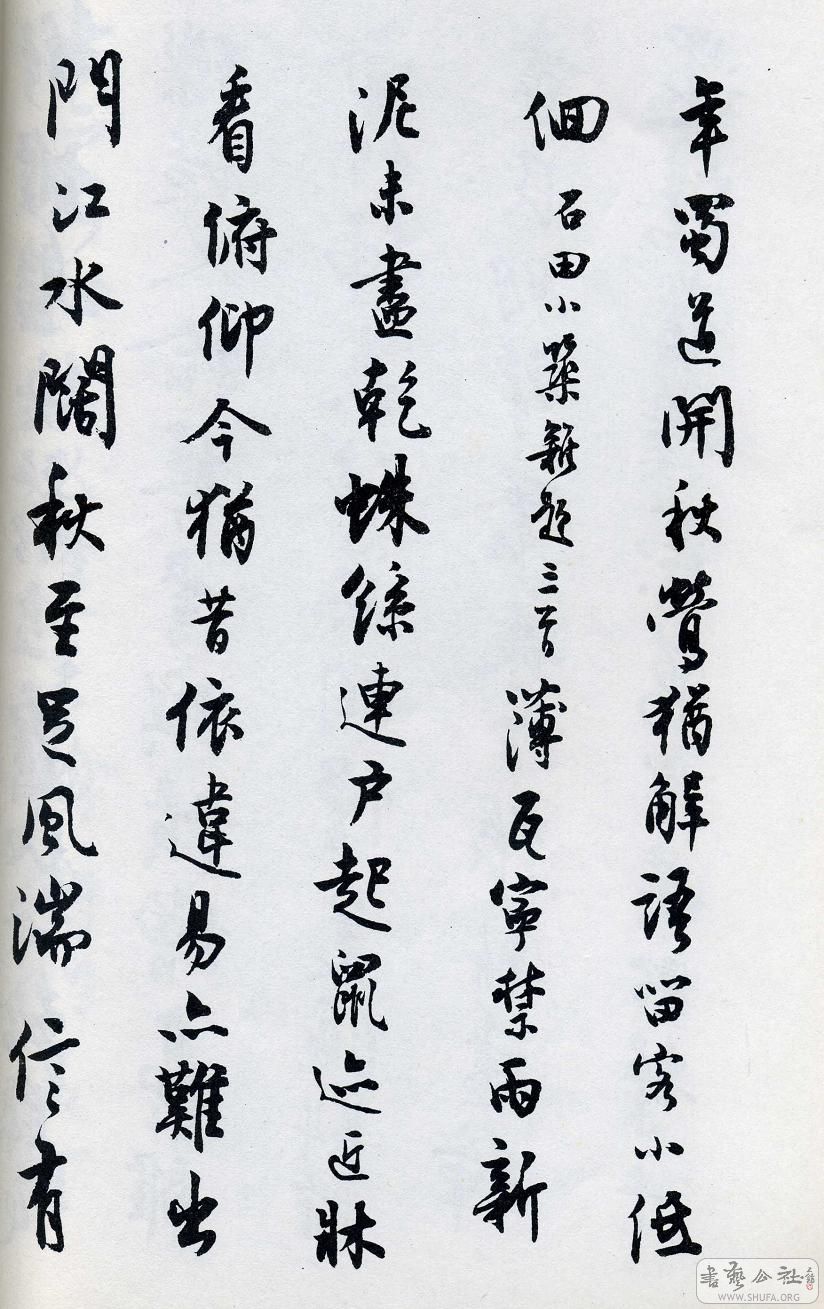 年蜀道開秋鶯猶解語留客小低
佪石田小築雜題三首薄瓦寧禁雨新
泥未盡乾蛛絲連戶起鼠迹近牀
看俯仰今猶昔依違易亦難出
門江水闊秋至足風湍信有
書藝公社
WWW.SHUFA.ORG